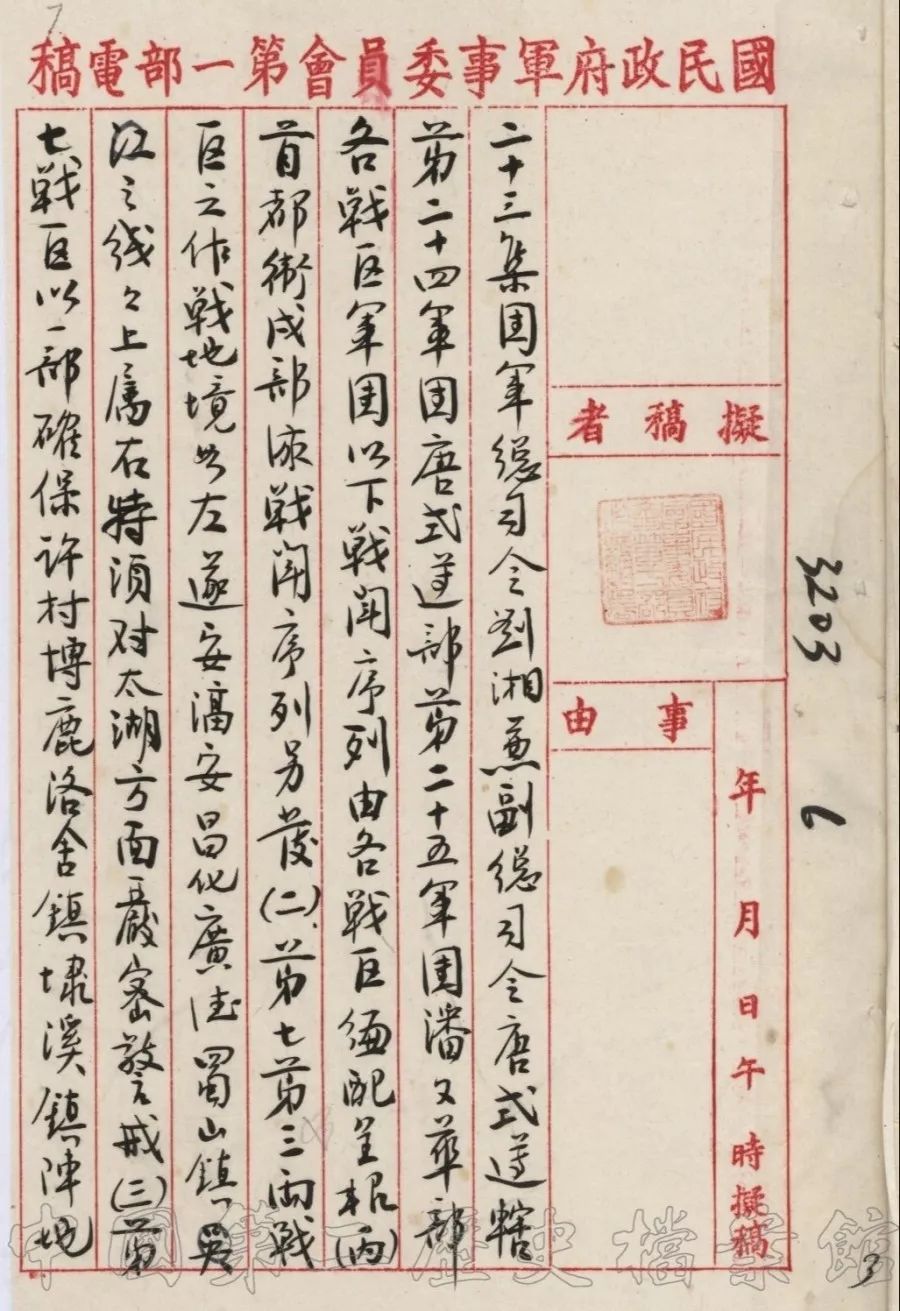 7
國民政府軍事委員會第一部電稿
擬稿者
事由
年月日午時擬稿
3203
6
二十三集团军總司令劉湘兼副總司令唐式遵轄
第二十四軍团唐式遵部第二十五軍团潘文華部
各戰区軍团以下戰闘序列由各戰区編配呈報(丙)
首都衛戍部隊戰闘序列另發(二)第七第三兩戰
区之作戰地境如左遂安淳安昌化廣德蜀山鎮吳
江之线之上属右特須对太湖方面嚴密警戒(三)第
七戰区以一部確保许村博鹿洛舍鎮埭溪鎮陣地
3
中國第二歷史檔案館